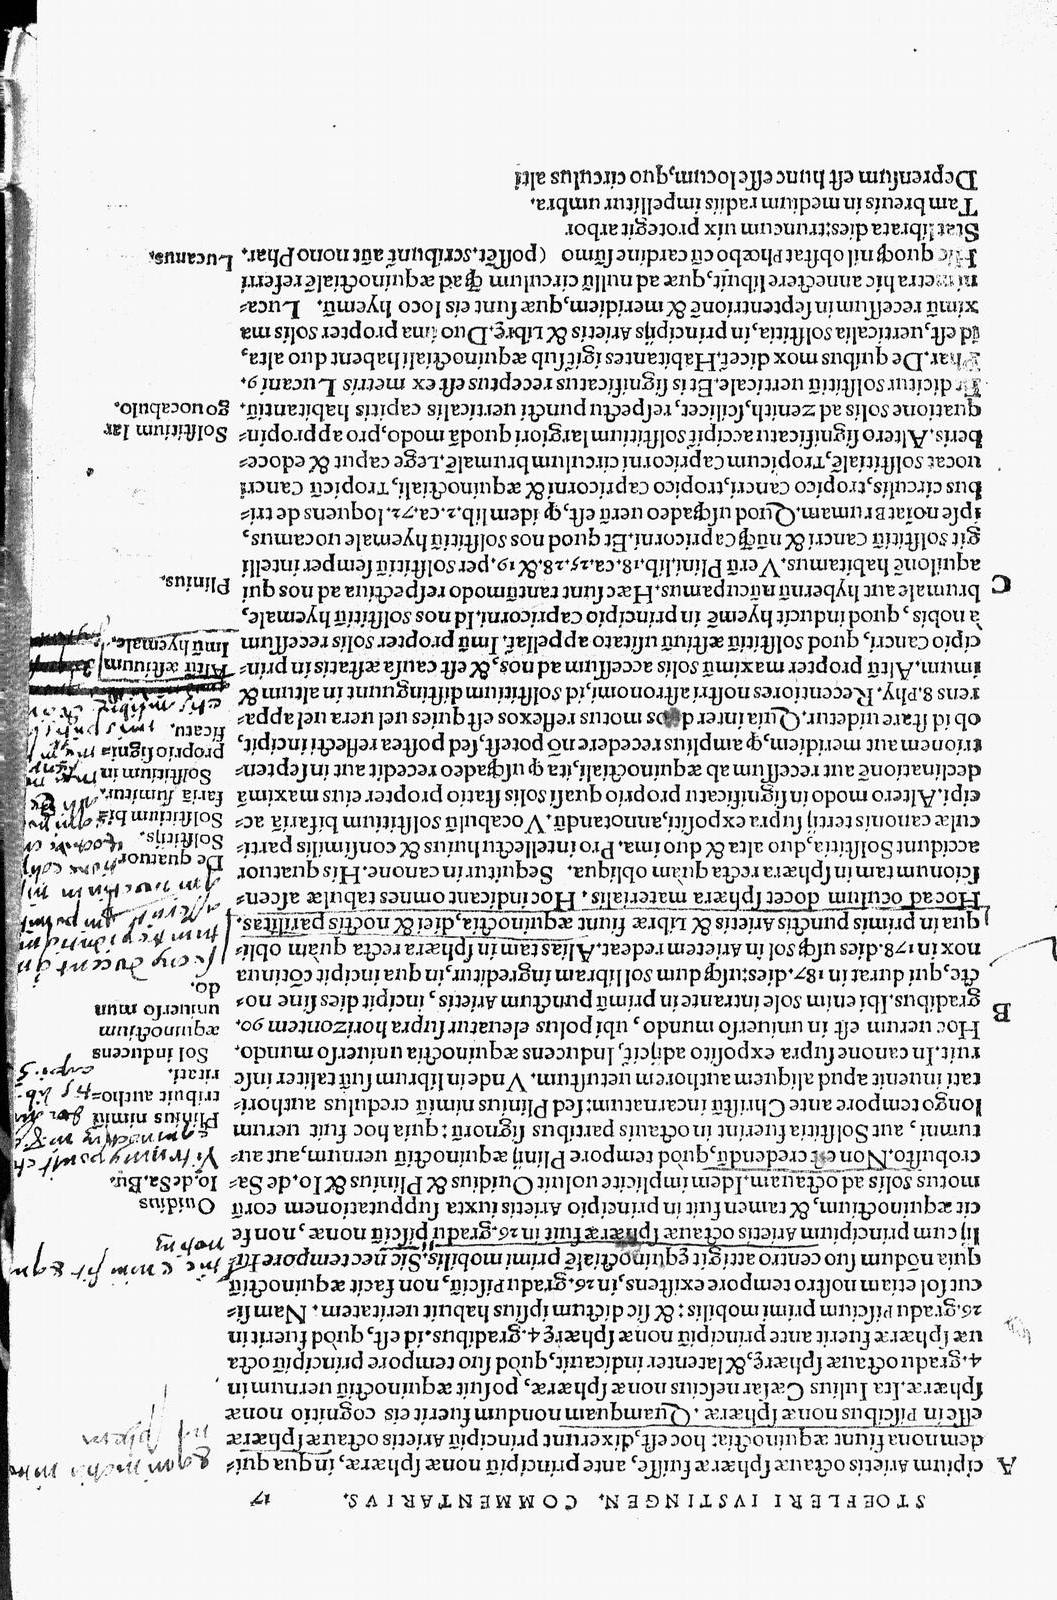 STOEFLERI IVSTINGEN. COMMENTARIVS. 17
A
cipium Arietis octauæ sphæræ fuisse, ante principiũ nonæ sphæræ, in qua qui-
dem nona fiunt æquinoctia: hoc est, dixerunt principiũ Arietis octauæ sphæræ
esse in Piscibus nonæ sphæræ. Quamquam nondum fuerit eis cognitio nonæ
sphæræ. Ita Iulius Cæsar nescius nonæ sphæræ, posuit æquinoctiũ uernum in
4. gradu octauæ sphærę, & latenter indicauit, quòd suo tempore principiũ octa
uæ sphæræ fuerit ante principiũ nonæ sphærę 4. gradibus. id est, quòd fuerit in
26. gradu Piscium primi mobilis: & sic dictum ipsius habuit ueritatem. Nam si-
cut sol etiam nostro tempore existens, in 26. gradu Pisciũ, non facit æquinoctiũ
quia nõdum suo centro attigit ęquinoctiale primi mobilis. Sic nec tempore Iu-
lij cum principium Arietis octauæ sphæræ fuit in 26. gradu pisciũ nonæ, non fe
cit æquinoctium, & tamen fuit in principio Arietis iuxta supputationem corũ
motus solis ad octauam. Idem implicite uoluit Ouidius & Plinius & Io. de Sa-
crobusto. Non est credendũ, quòd tempore Plinij æquinoctiũ uernum, aut au-
tumni, aut Solstitia fuerint in octauis partibus signorũ: quia hoc fuit uerum
longo tempore ante Christũ incarnatum: sed Plinius nimiũ credulus authori-
tati inuenit apud aliquem authorem uetustum. Vnde in librum suũ taliter inse
ruit. In canone supra exposito adijcit, Inducens æquinoctia uniuerso mundo.
Hoc uerum est in uniuerso mundo, ubi polus eleuatur supra horizontem 90.
B
gradibus. Ibi enim sole intrante in primũ punctum Arietis, incipit dies sine no-
cte, qui durat in 187. dies: usque dum sol libram ingreditur, in qua incipit cõtinua
nox in 178. dies usque sol in Arietem redeat. Alias tam in sphæra recta quàm obli-
qua in primis punctis Arietis & Libræ fiunt æquinoctia, diei & noctis paritas.
Hoc ad oculum docet sphæra materialis. Hoc indicant omnes tabulæ ascen-
sionum tam in sphæra recta quàm obliqua. Sequitur in canone. His quatuor
accidunt Solstitia, duo alta & duo ima. Pro intellectu huius & consimilis parti-
culæ canonis tertij supra expositi, annotandũ. Vocabulũ solstitium bifariã ac-
cipi. Altero modo in significatu proprio quasi solis statio propter eius maximã
declinationẽ aut recessum ab æquinoctiali, ita ꝙ usqueadeo recedit aut in septen-
trionem aut meridiem, ꝙ amplius recedere nõ potest, sed postea reflecti incipit,
ob id stare uidetur. Quia inter duos motus reflexos est quies uel uera uel appa-
rens 8. Phy. Recentiores nostri astronomi, id solstitium distinguunt in altum &
imum. Altũ propter maximũ solis accessum ad nos, & est causa æstatis in prin-
cipio cancri, quod solstitiũ æstiuũ usitato appellat̃. Imũ propter solis recessum
à nobis, quod inducit hyemẽ in principio capricorni. Id nos solstitiũ hyemale,
brumale aut hybernũ nũcupamus. Hæc sunt tantũmodo respectiua ad nos qui
C
aquilonẽ habitamus. Verũ Plini. lib. 18. ca. 25. 28. & 19. per solstitiũ semper intelli
git solstitiũ cancri & nũꝙ̃ capricorni. Et quod nos solstitiũ hyemale uocamus,
ipse noĩat Brumam. Quod usqueadeo uerũ est, ꝙ idem lib. 2. ca. 72. loquens de tri-
bus circulis, tropico cancri, tropico capricorni & æquinoctiali, Tropicũ Cancri
uocat solstitialẽ, Tropicum capricorni circulum brumalẽ. Lege caput & edoce-
beris. Altero significatu accipit̃ solstitium largiori quodã modo, pro appropin-
quatione solis ad zenith, scilicet, respectu puncti uerticalis capitis habitantiũ.
Et dicitur solstitiũ uerticale. Et is significatus receptus est ex metris Lucani 9.
Phar. De quibus mox dicet̃. Habitantes igit̃ sub æquinoctiali habent duo alta,
id est, uerticalia solstitia, in principijs Arietis & Librę. Duo ima propter solis ma
ximũ recessum in septentrionẽ & meridiem, quæ sunt eis loco hyemũ. Luca-
ni metra hic annectere libuit, quæ ad nullũ circulum ꝙ̃ ad æquinoctialẽ referri
Hic quoque nil obstat Phœbo cũ cardine sũmo (possẽt. scribunt̃ aũt nono Phar.
Stat librata dies: truncum uix protegit arbor
Tam breuis in medium radiis impellitur umbra.
Deprensum est hunc esse locum, quo circulus alti
Ouidius
Io. de Sa. Bu.
Plinius nimiũ
tribuit autho-
ritati.
Sol inducens
æquinoctium
uniuerso mun
do.
De quatuor
Solstitijs.
Solstitium bi-
faria sumitur.
Solstitium in
proprio signi-
ficatu.
Altũ æstiuum
Imũ hyemale.
Plinius.
Solstitium lar
go uocabulo.
Lucanus.